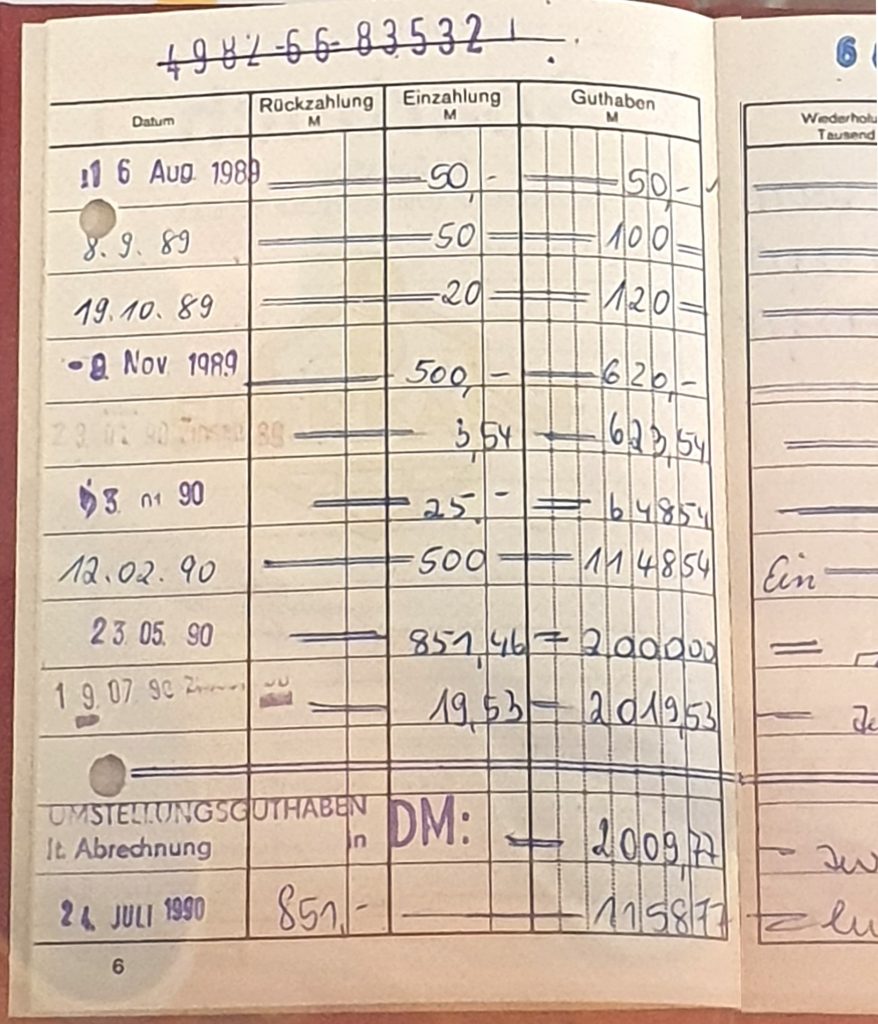 4982-66-83532
6
Datum Rückzahlung M Einzahlung M Guthaben M
Wiederholu
Tausend
16 Aug 1989 50,- 50,-
8.9.89 50 100
19.10.89 20 120
Nov 1989 500,- 620,-
90 Zinsen 89 3,54 623,54
90 25,- 648 54
12.02.90 500 1148 54 Ein
23.05.90 851,46 2000 00
19.07.90 Zinsen 19,53 2019,53
UMSTELLUNGSGUTHABEN
lt. Abrechnung in DM: 2009,77
24. JULI 1990 851,- 1158 77
6